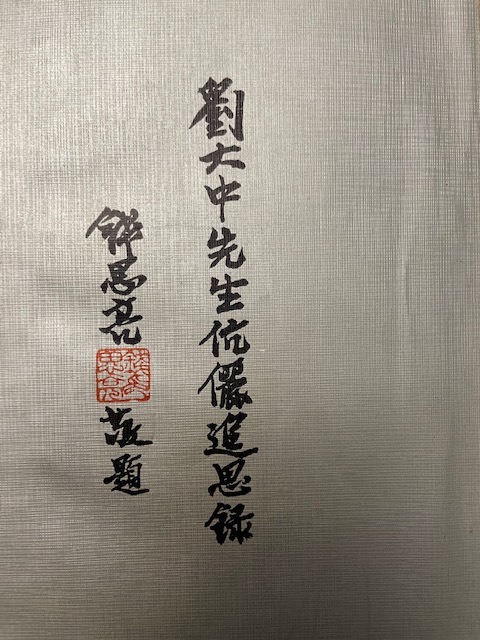 劉大中先生伉儷追思錄
錢思亮敬題
錢思亮